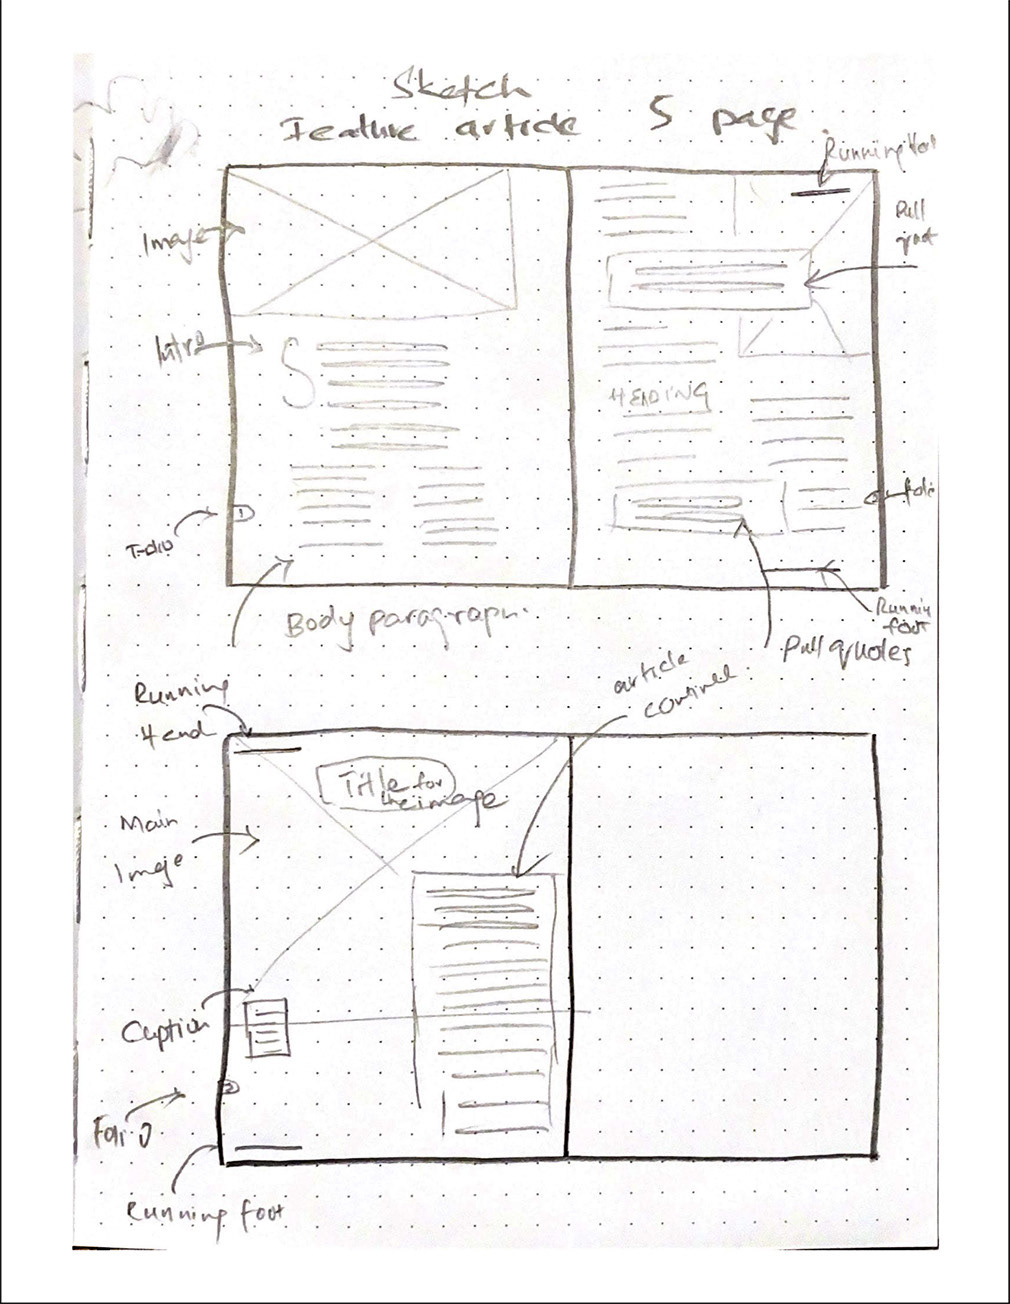 Sketch
Feature article 5 page
Running
Pull
Image
Intro
S
HEADING
1
Body paragraph
Running
foot
Pull quotes
article
Running
Head
Title for
the image
Main
Image
Caption
2
Folio
Running foot